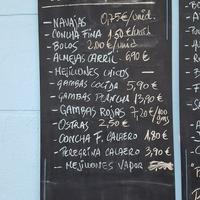 - NAVAJAS 0,75€/unid.
- CONCHA FINA 1.50€/unid
- BOLOS 2.00€/unid
- ALMEJAS CARRIL - 6,90€
- MEJILLONES CHICOS -
- GAMBAS COCIDA 5,90€
- GAMBAS PLANCHA 13,90€
- GAMBAS ROJAS 7,20€/100 gms
- OSTRAS 2,50€
- CONCHA F. CALERO 1,80€
- PEREGRINA CALERO 3,90€
- MEJILLONES VAPOR